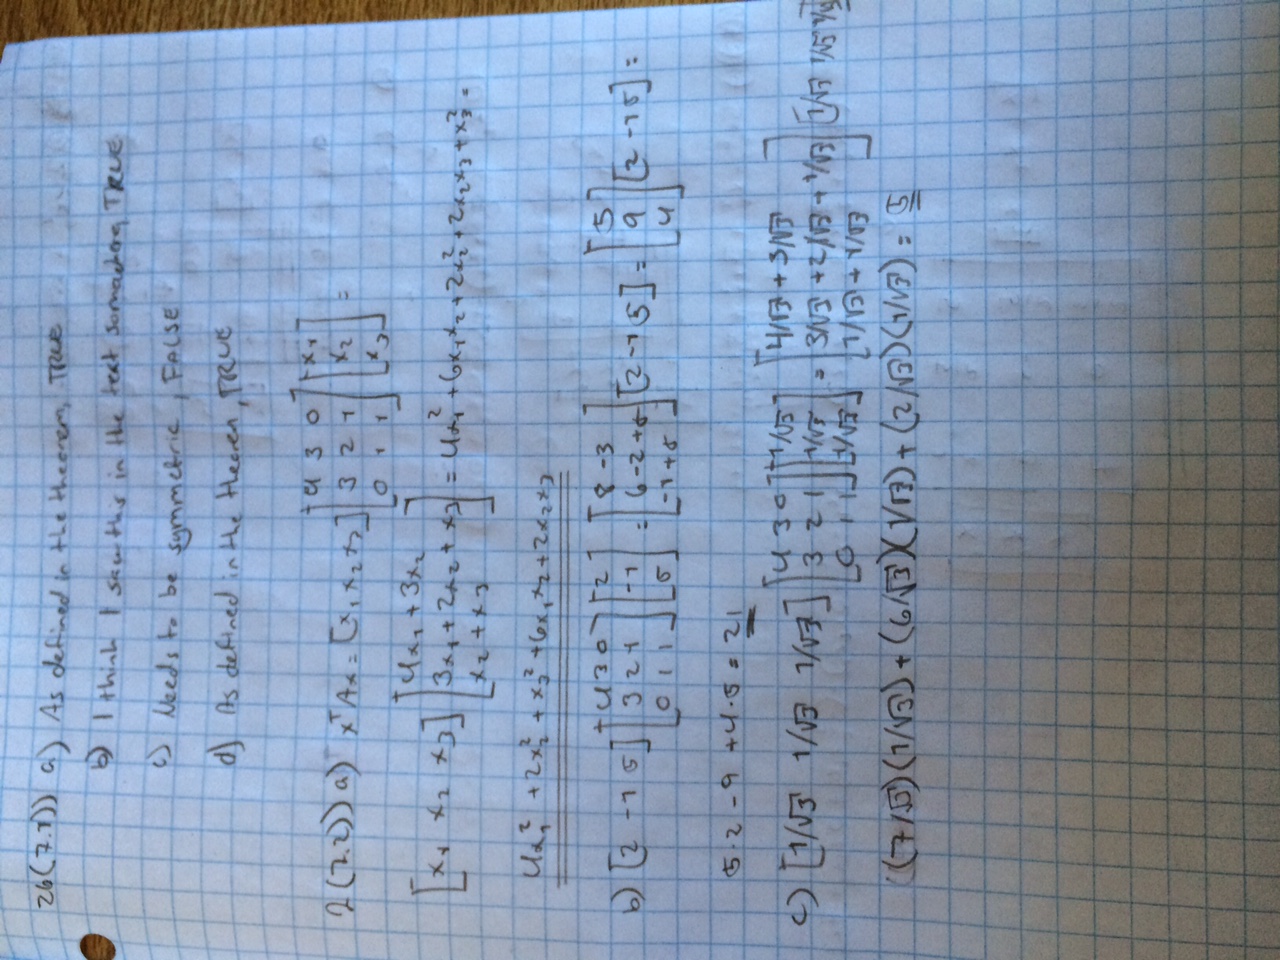 26(7.1)) a) As defined in the theorem, TRUE
b) I think I saw this in the text TRUE
c) Needs to be symmetric, FALSE
d) As defined in the theoren, TRUE
2(7.2)) a) xᵀAx = [x₁ x₂ x₃] [4 3 0; 3 2 1; 0 1 1] [x₁; x₂; x₃] =
[x₁ x₂ x₃] [4x₁ + 3x₂; 3x₁ + 2x₂ + x₃; x₂ + x₃] = 4x₁² + 6x₁x₂ + 2x₂² + 2x₂x₃ + x₃² =
4x₁² + 2x₂² + x₃² + 6x₁x₂ + 2x₂x₃
b) [2 -1 5] [4 3 0; 3 2 1; 0 1 1] [2; -1; 5] = [8 - 3; 6 - 2 + 5; -1 + 5] [2 -1 5] = [5; 9; 4] [2 -1 5] =
5·2 - 9 + 4·5 = 21
c) [1/√3 1/√3 1/√3] [4 3 0; 3 2 1; 0 1 1] [1/√3; 1/√3; 1/√3] = [4/√3 + 3/√3; 3/√3 + 2/√3 + 1/√3; 1/√3 + 1/√3] [1/√3 1/√3 1/√3]
(7/√3)(1/√3) + (6/√3)(1/√3) + (2/√3)(1/√3) = 5